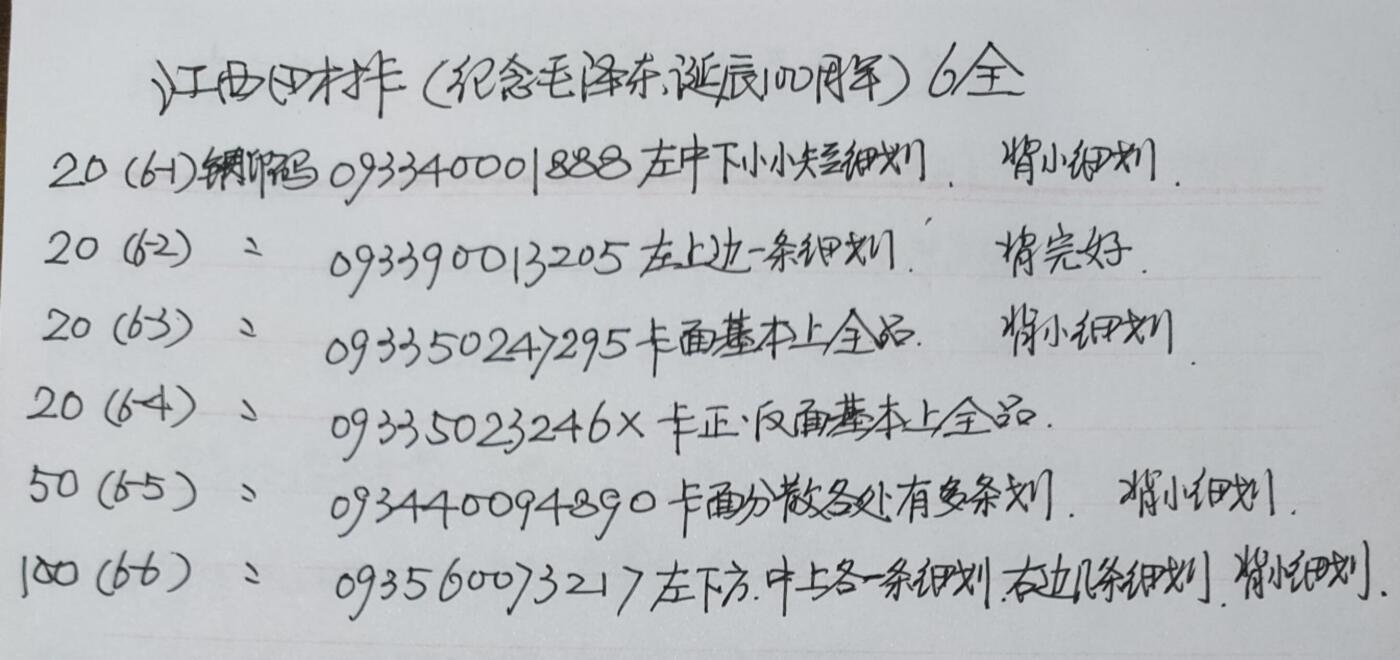 江西田村卡(纪念毛泽东诞辰100周年)6全
20(6-1)钢印码 093340001888 左中下小小短细划. 背小细划.
20(6-2) 〃 093390013205 左上边一条细划. 背完好.
20(6-3) 〃 093350247295 卡面基本上全品. 背小细划.
20(6-4) 〃 09335023246X 卡正.反面基本上全品.
50(6-5) 〃 093440094890 卡面分散各处有多条划. 背小细划.
100(6-6) 〃 093560073217 左下方.中上各一条细划.右边几条细划.背小细划.